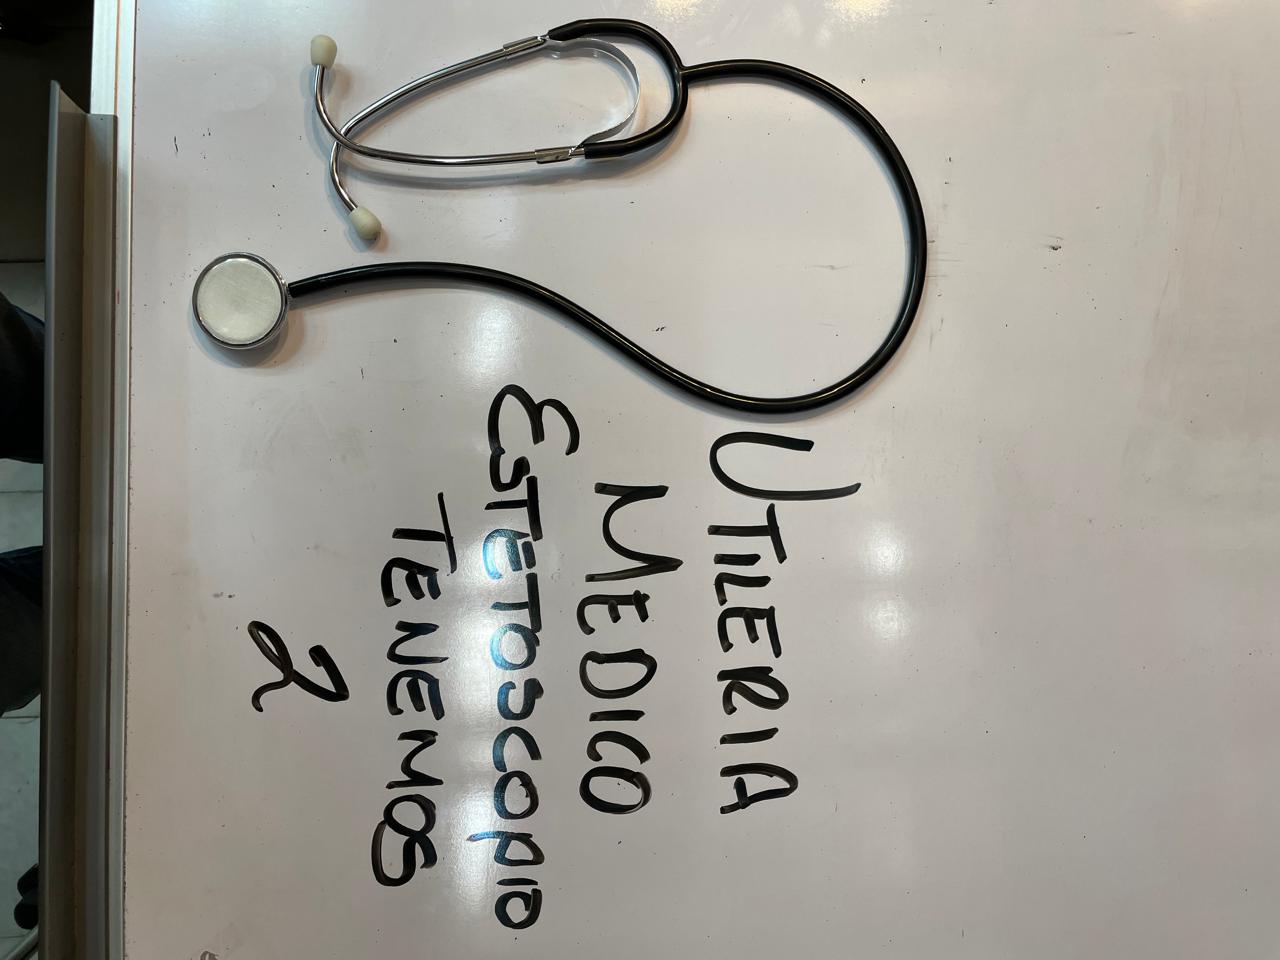 UTILERIA
MEDICO
ESTETOSCOPIO
TENEMOS
2